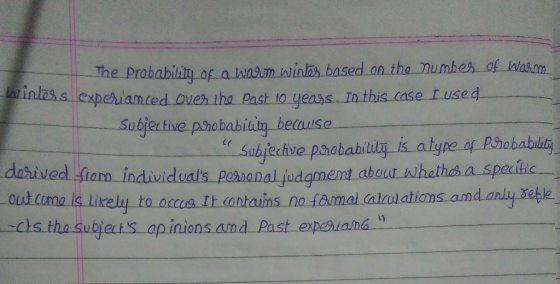 The Probability of a warm winter based on the number of warm
winters experianced over the Past 10 years. In this case I used
Subjective probability because
" Subjective probability is a type of Probability
derived from individual's personal judgment about whether a specific
outcome is likely to occur. It contains no formal calculations and only refle
-cts the subject's opinions and Past experians "